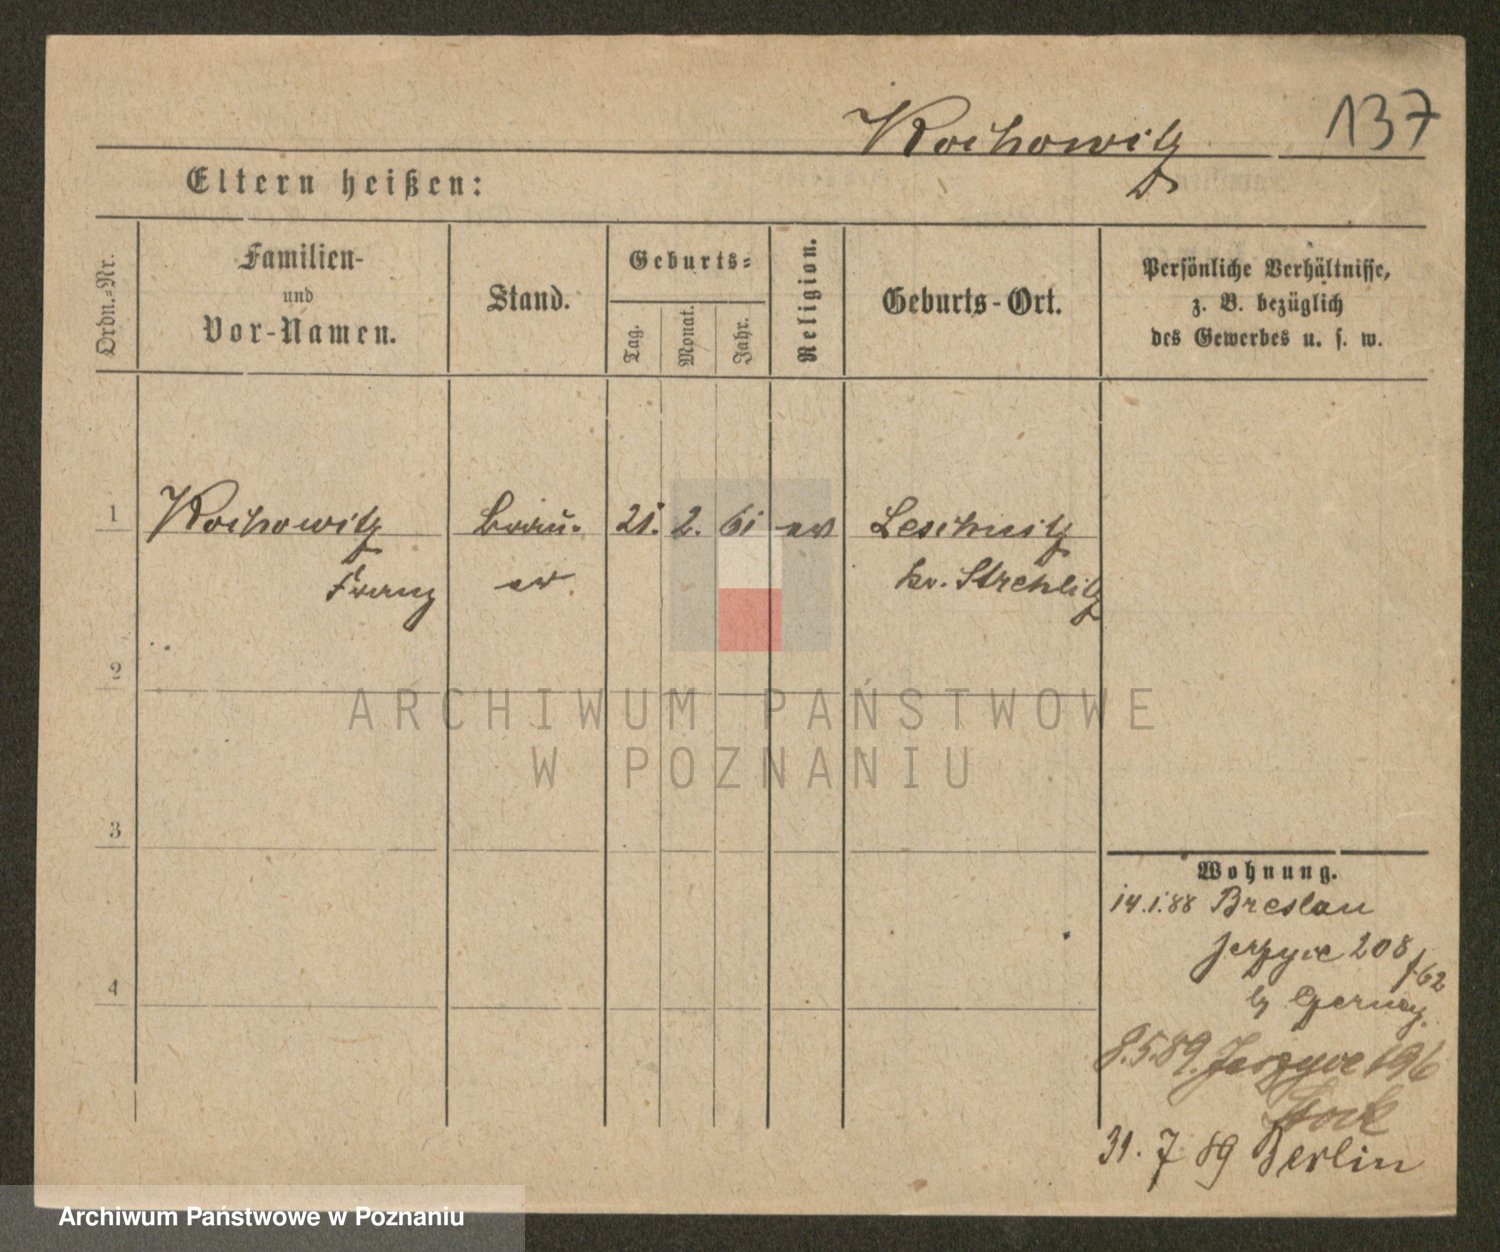 Kochowitz
137
Eltern heißen:
Ordn.=Nr.
Familien-
und
Vor-Namen.
Stand.
Geburts=
Tag.
Monat.
Jahr.
Religion.
Geburts-Ort.
Persönliche Verhältnisse,
z. B. bezüglich
des Gewerbes u. s. w.
1
Kochowitz
Franz
Brau-
er
21. 2. 61
ev
Leschnitz
Kr. Strehlitz
2
3
4
Wohnung.
14.1.88 Breslau
Jerzyce 208
/62
b/
8.5.89. Jerzyce 196
31. 7 89 Berlin
ARCHIWUM PAŃSTWOWE
W POZNANIU
Archiwum Państwowe w Poznaniu